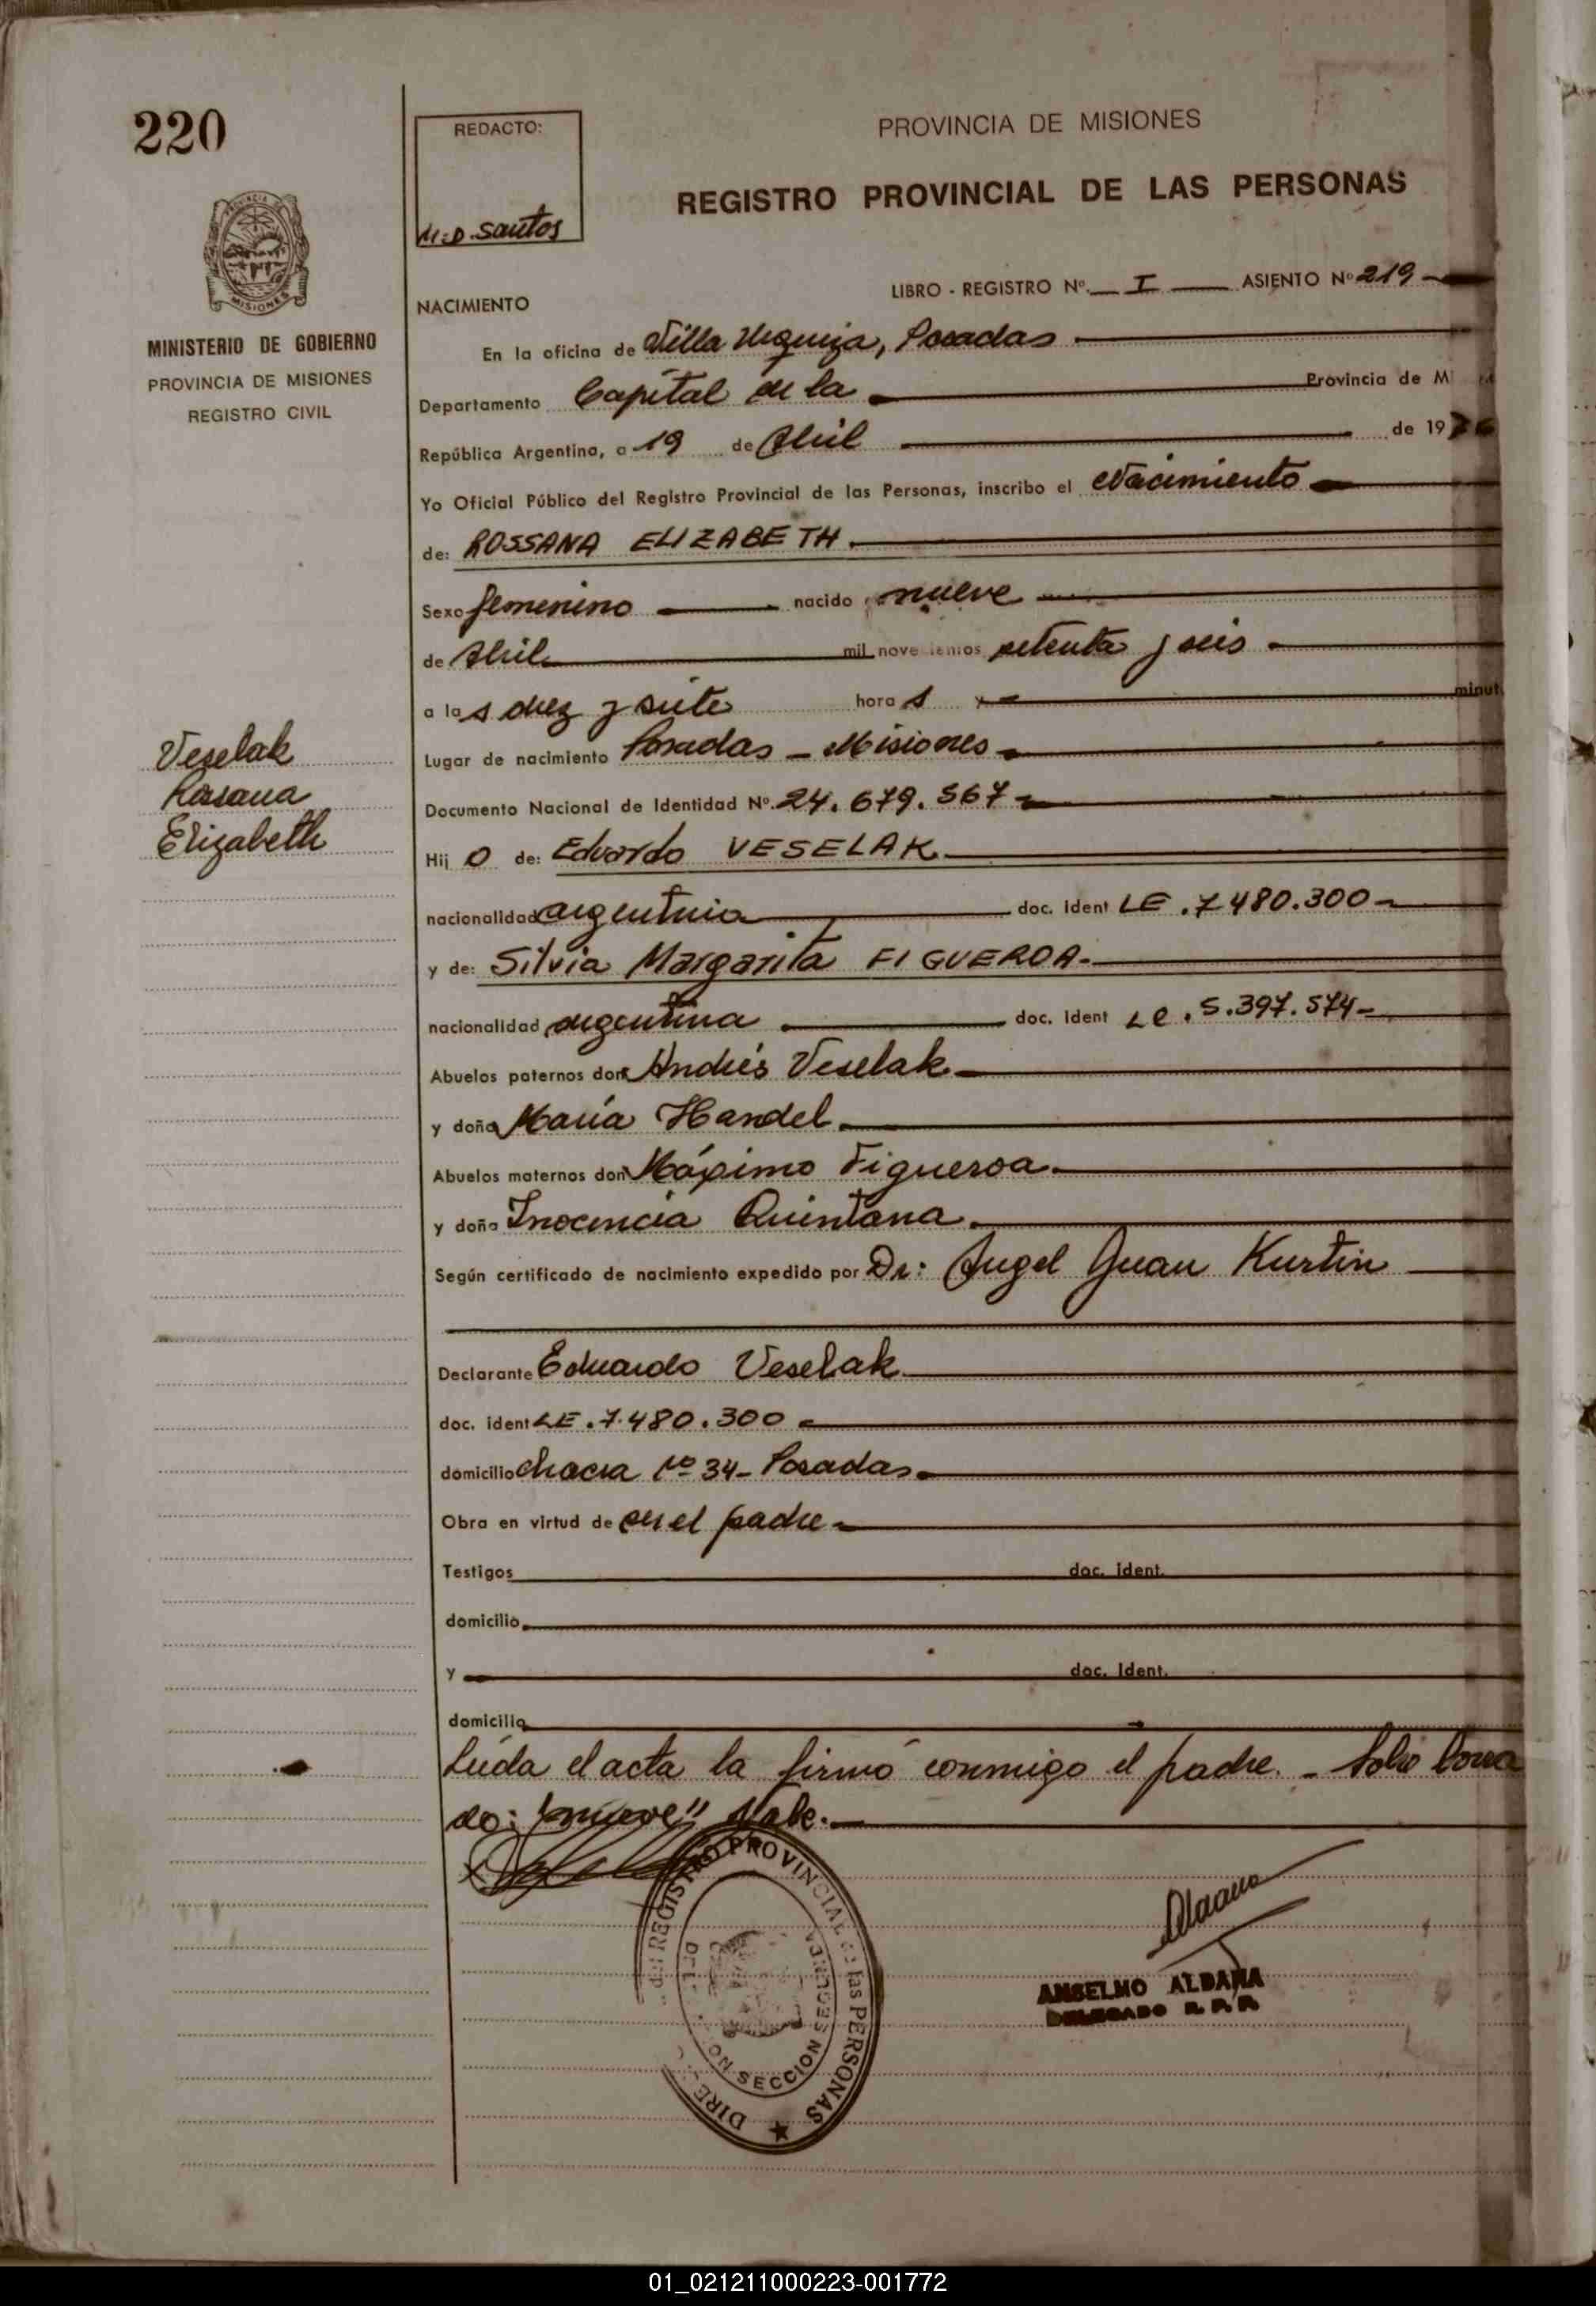 220
REDACTO:
M.D. Santos
PROVINCIA DE MISIONES
REGISTRO PROVINCIAL DE LAS PERSONAS
MISIONES
MINISTERIO DE GOBIERNO
PROVINCIA DE MISIONES
REGISTRO CIVIL
LIBRO - REGISTRO Nº. I ASIENTO Nº 219
NACIMIENTO
En la oficina de Villa Urquiza, Posadas
Departamento Capital de la Provincia de M
República Argentina, a 19 de Abril de 19
Yo Oficial Público del Registro Provincial de las Personas, inscribo el Nacimiento
de: ROSSANA ELIZABETH.
Sexo femenino nacido nueve
de Abril mil novecientos setenta y seis
a las diez y siete horas minut
Lugar de nacimiento Posadas - Misiones
Documento Nacional de Identidad Nº. 24.679.567
Veselak
Rossana
Elizabeth
Hij o de: Eduardo VESELAK
nacionalidad argentina doc. Ident LE. 7480.300
y de: Silvia Margarita FIGUEROA.
nacionalidad argentina doc. Ident Le. 5.397.574
Abuelos paternos don Andrés Veselak
y doña María Handel
Abuelos maternos don Máximo Figueroa
y doña Inocencia Quintana
Según certificado de nacimiento expedido por Dr: Angel Juan Kurtin
Declarante Eduardo Veselak
doc. ident LE. 7.480.300
domicilio chacra Nº 34- Posadas
Obra en virtud de ser el padre
Testigos doc. Ident.
domicilio
y doc. Ident.
domicilio
Leída el acta la firmó conmigo el padre. - Sobre borra
do: "nueve" Vale.
REGISTRO PROVINCIAL de las PERSONAS
SECCION
ANSELMO ALDANA
DELEGADO R. P. P.
01_021211000223-001772